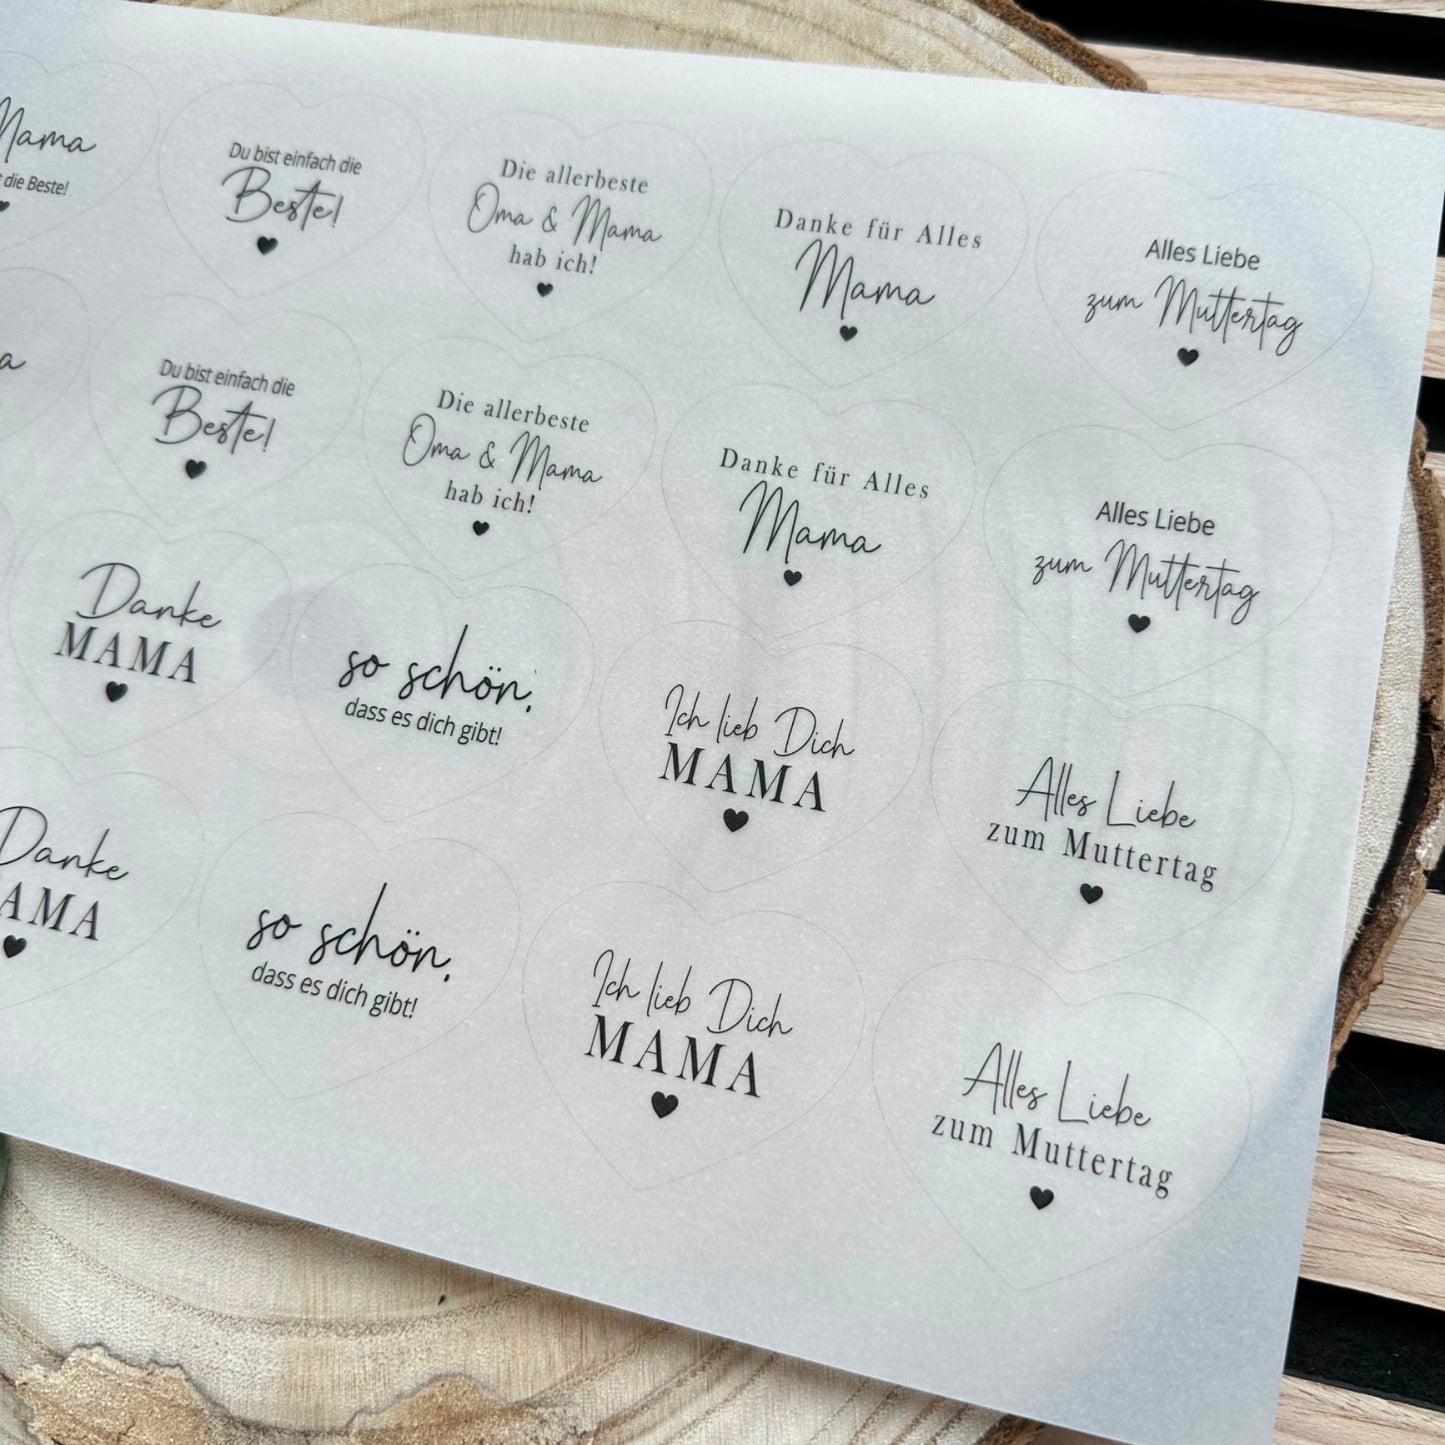 Mama
die Beste!
Du bist einfach die
Beste!
Die allerbeste
Oma & Mama
hab ich!
Danke für Alles
Mama
Alles Liebe
zum Muttertag
a
Du bist einfach die
Beste!
Die allerbeste
Oma & Mama
hab ich!
Danke für Alles
Mama
Alles Liebe
zum Muttertag
Danke
MAMA
so schön,
dass es dich gibt!
Ich lieb Dich
MAMA
Alles Liebe
zum Muttertag
Danke
AMA
so schön,
dass es dich gibt!
Ich lieb Dich
MAMA
Alles Liebe
zum Muttertag